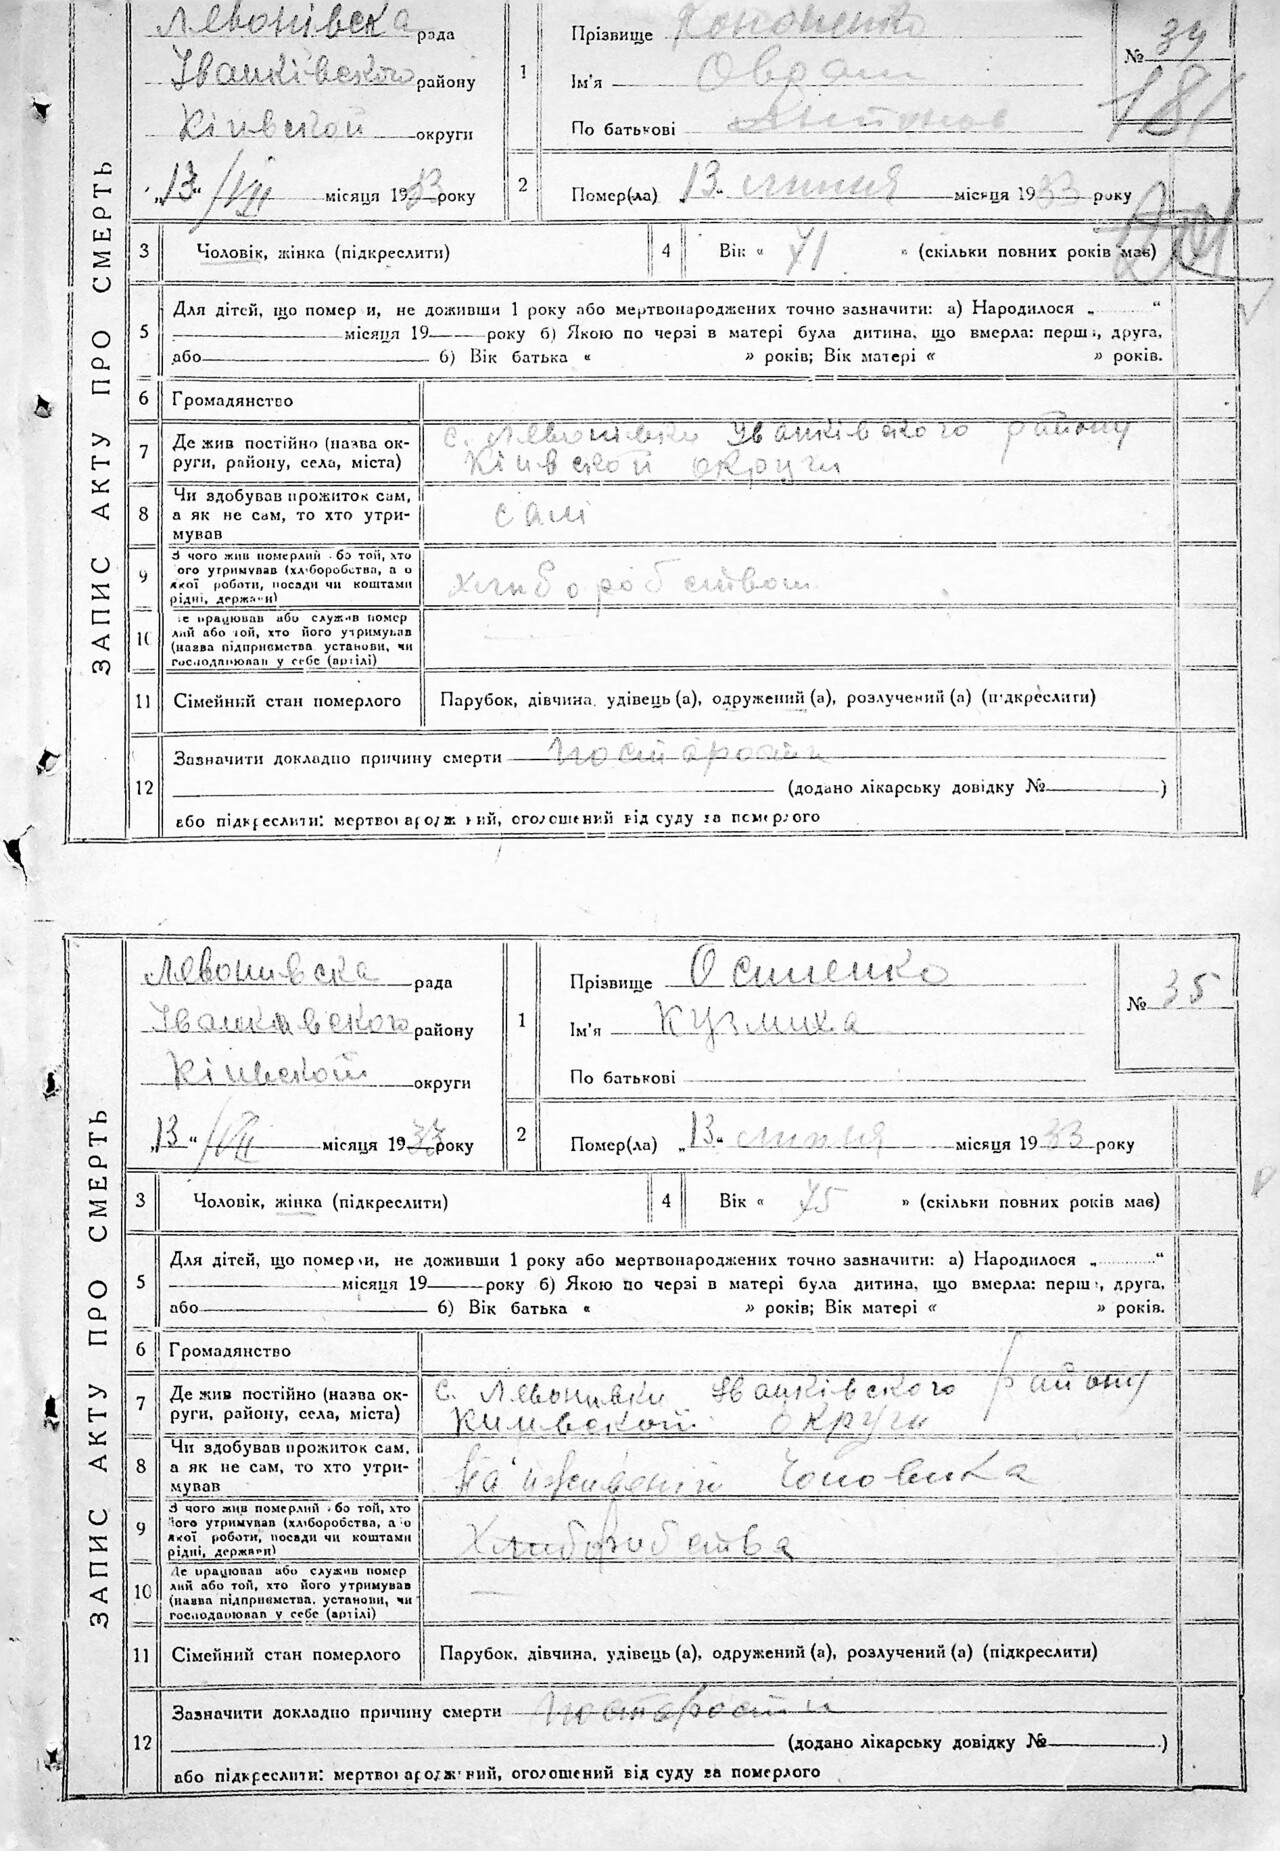 ЗАПИС АКТУ ПРО СМЕРТЬ
Левонівска рада
Іванківского району
Кіивской округи
„13“ /VII місяця 1933 року
1
Прізвище Кононенко
Ім'я Оврам
По батькові
№ 34
181
2
Помер(ла) 13 „ липня місяця 1933 року
3 Чоловік, жінка (підкреслити)
4 Вік « 71 » (скільки повних років мав)
5 Для дітей, що помер и, не доживши 1 року або мертвонароджених точно зазначити: а) Народилося „ “
місяця 19 року б) Якою по черзі в матері була дитина, що вмерла: перш , друга,
або б) Вік батька « » років; Вік матері « » років.
6 Громадянство
7 Де жив постійно (назва ок-
руги, району, села, міста)
с. Левонівки Іванківского району
Кіивской округи
8 Чи здобував прожиток сам,
а як не сам, то хто утри-
мував
самі
9 З чого жив померлий або той, хто
ого утримував (хліборобства, а о
якої роботи, посади чи коштами
рідні, держави)
хлиборобством
10 е працював або служив помер
лий або той, хто його утримував
(назва підприємства установи, чи
господарював у себе (артілі)
11 Сімейний стан померлого
Парубок, дівчина, удівець (а), одружений (а), розлучений (а) (підкреслити)
12 Зазначити докладно причину смерти по старости
(додано лікарську довідку № )
або підкреслити: мертвонароджений, оголошений від суду за померлого
ЗАПИС АКТУ ПРО СМЕРТЬ
Левонивска рада
Іванкивского району
Кіивской округи
„13“ /VII місяця 1933 року
1
Прізвище Осипенко
Ім'я Кузмиха
По батькові
№ 35
2
Помер(ла) „13„ липня місяця 1933 року
3 Чоловік, жінка (підкреслити)
4 Вік « 75 » (скільки повних років мав)
5 Для дітей, що помер и, не доживши 1 року або мертвонароджених точно зазначити: а) Народилося „ “
місяця 19 року б) Якою по черзі в матері була дитина, що вмерла: перш , друга,
або б) Вік батька « » років; Вік матері « » років.
6 Громадянство
7 Де жив постійно (назва ок-
руги, району, села, міста)
с. Левонивки Іванківского району
Киивской округи
8 Чи здобував прожиток сам,
а як не сам, то хто утри-
мував
На иждивеніи Чоловика
9 З чого жив померлий або той, хто
його утримував (хліборобства, а о
якої роботи, посади чи коштами
рідні, держави)
Хлиборобства
10 Де працював або служив помер
лий або той, хто його утримував
(назва підприємства, установи, чи
господарював у себе (артілі)
11 Сімейний стан померлого
Парубок, дівчина, удівець (а), одружений (а), розлучений (а) (підкреслити)
12 Зазначити докладно причину смерти по старости
(додано лікарську довідку № )
або підкреслити: мертвонароджений, оголошений від суду за померлого